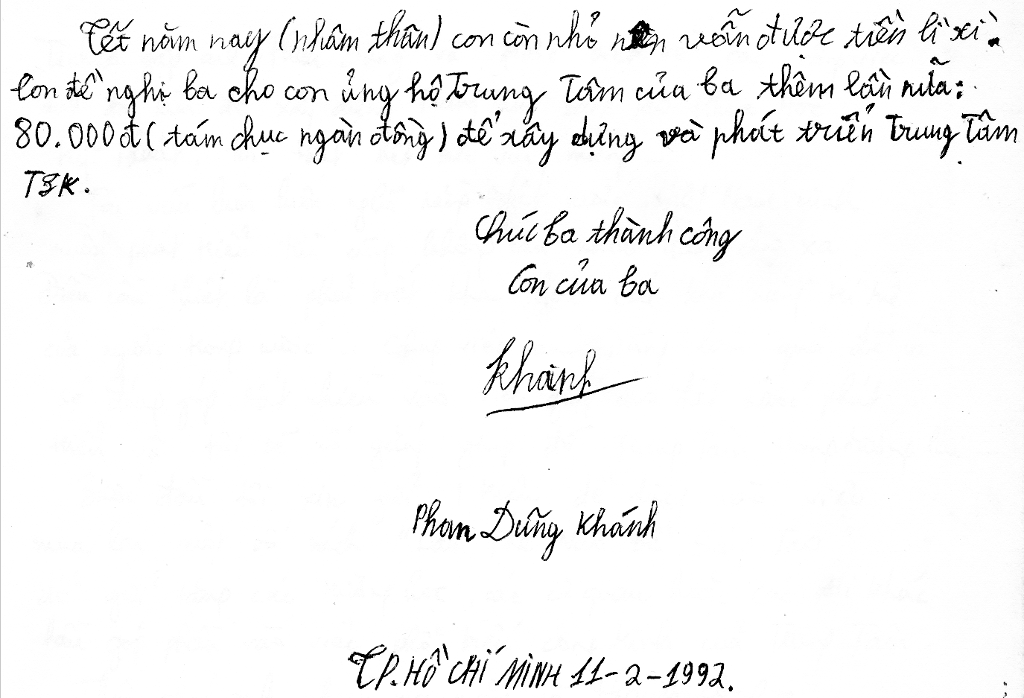 Tết năm nay (nhâm thân) con còn nhỏ nên vẫn được tiền lì xì.
Con đề nghị ba cho con ủng hộ Trung Tâm của ba thêm lần nữa:
80.000đ (tám chục ngàn đồng) để xây dựng và phát triển Trung Tâm
TSK.
Chúc ba thành công
Con của ba
Khánh
Phan Dũng Khánh
TP. HỒ CHÍ MINH 11-2-1992.